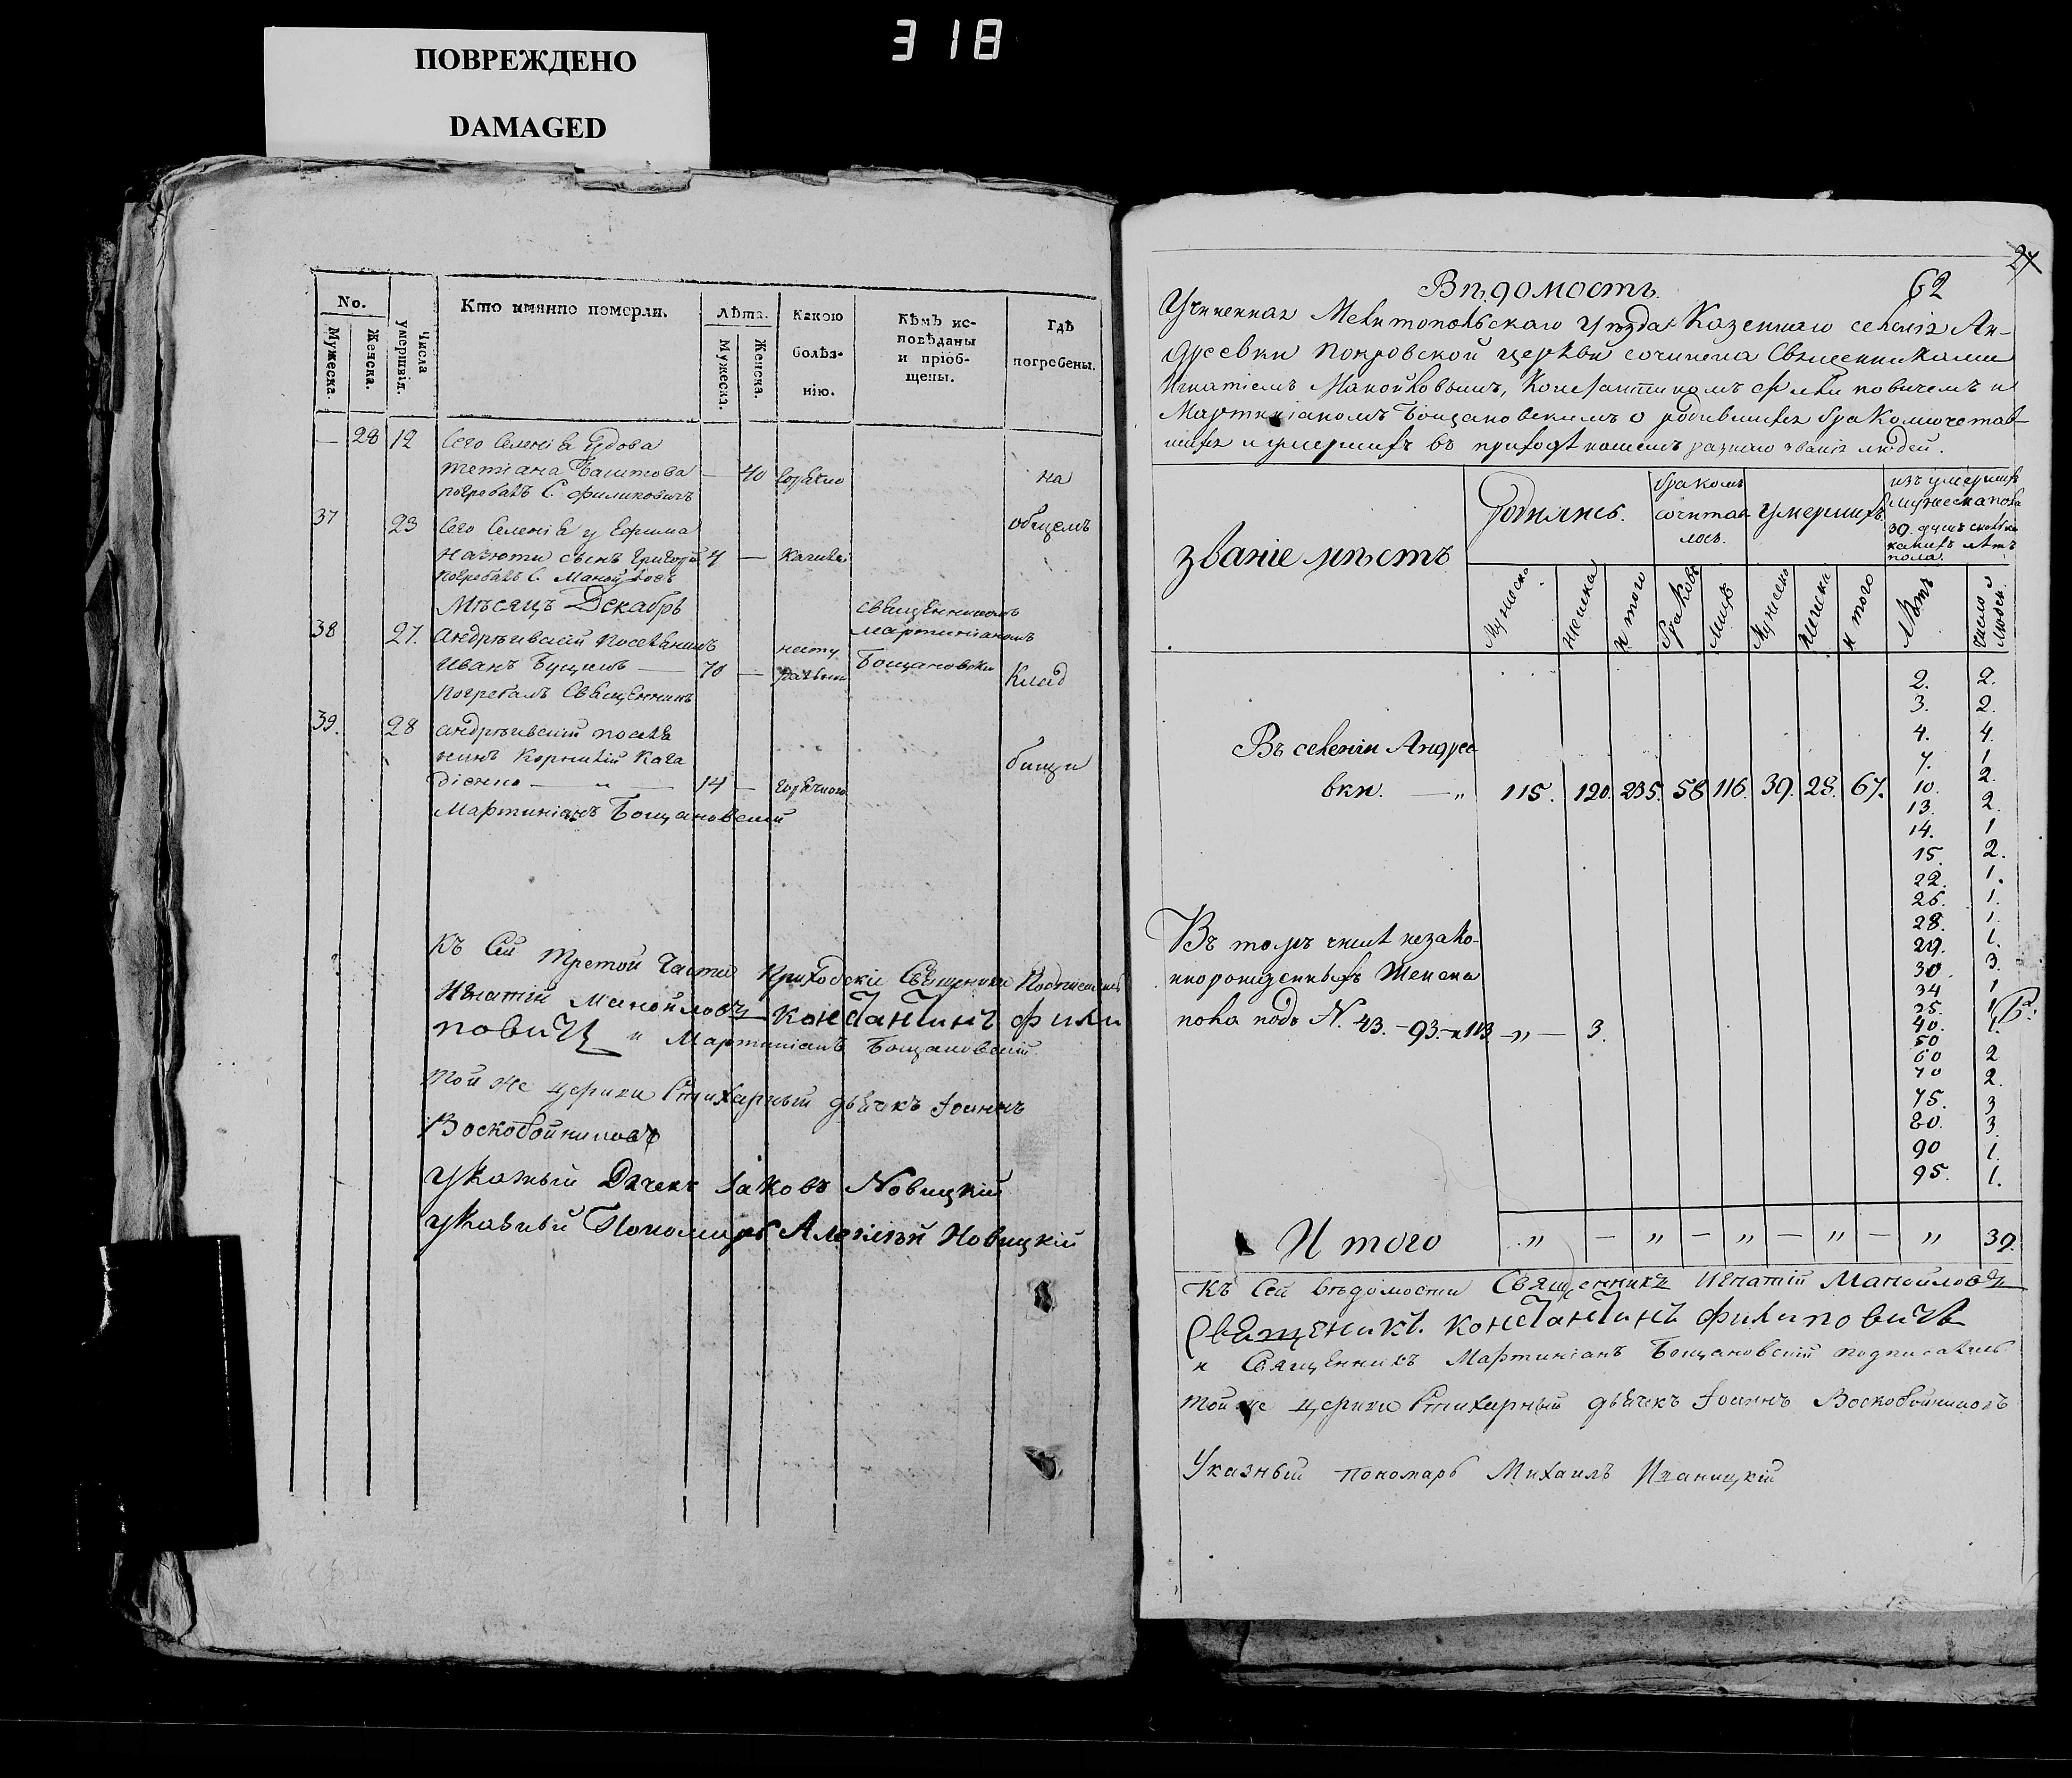 ПОВРЕЖДЕНО
DAMAGED
318
No.
Мужеска.
Женска.
Числа умершвія.
Кто имянно померли.
Лѣта.
Мужеска.
Женска.
Какою болѣз-
нію.
Кѣмъ ис-
повѣданы
и пріоб-
щены.
Гдѣ
погребены.
— 28 12 Сего Селенія Вдова
Теттіана Баштова — 40
погребалъ С. Филиповичъ
на
37 23 Сего Селенія у Ефима
общемъ
сынъ Григорій —
погребалъ С. Манойловъ
Мѣсяцъ Декабрь
священникомъ
Мартиніаномъ
Бощановски
38 27. Андрѣевскій Поселянинъ
Иванъ — 70 —
Погребалъ Священникъ
Клад
39. 28 Андрѣевскій поселя
нинъ Корнилій
— „ — 14 —
бищи
Мартиніанъ Бощановскій
Къ Сей Третой Части Приходскіе Священники Подписались
Игнатій Манойловъ — Константинъ Фили
повичъ и Мартиніанъ Бощановскій
Той же церкви Стихарный дьячекъ Іоаннъ
Воскобойниковъ
Указный Дячекъ Іаковъ Новицкій
Указный Пономарь Алексѣй Новицкій
24
Вѣдомость. 62
Учиненная Мелитопольскаго Уѣзда Казеннаго селенія Ан-
дреевки Покровской церкви сочинена Священниками
Игнатіемъ Манойловымъ, Константиномъ Филиповичемъ и
Мартиніаномъ Бощановскимъ о родившихся бракомъсочетав-
шихся и умершихъ въ приходѣ нашемъ разнаго званія людей.
Званіе мѣстъ
Родилось.
бракомъ
сочетав
лось.
Умершихъ.
изъ умершихъ
мужеска пола
39. душъ сколько
какихъ лѣтъ
пола.
Мужеска
женска
и того
браковъ
лицъ
Мужеска
женска
и того
Лѣтъ
число людей.
Въ селеніи Андрее
вки. — „ 115. 120. 235. 58 116. 39. 28. 67.
2. 2.
3. 2.
4. 4.
7. 1
10. 2.
13. 2.
14. 1
15. 2.
22. 1.
26. 1.
28. 1.
29. 1.
30. 3.
34 1
35. 1
40. 1.
50
60 2
70 2.
75. 3
80. 3.
90 1.
95. 1.
Въ томъ числѣ незако-
ннорожденныхъ Женска
пола подъ N. 43. – 93. – и 113 – „ — 3.
И того „ — „ — „ — „ — „ 39.
Къ Сей вѣдомости Священникъ Игнатій Манойловъ
Священикъ. Константинъ Филиповичь
и Священникъ Мартиніанъ Бощановскій подписались
Той же церкви Стихарный дьячекъ Іоаннъ Воскобойниковъ
Указный пономарь Михаилъ Иваницкій